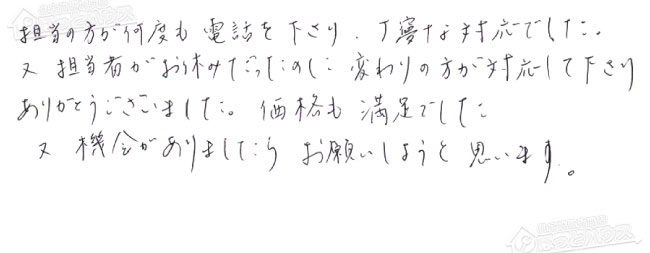 担当の方が何度も電話を下さり、丁寧な対応でした。
又 担当者がお休みだったのに 変わりの方が対応して下さり
ありがとうございました。価格も 満足でした
又 機会がありましたら お願いしようと 思います。